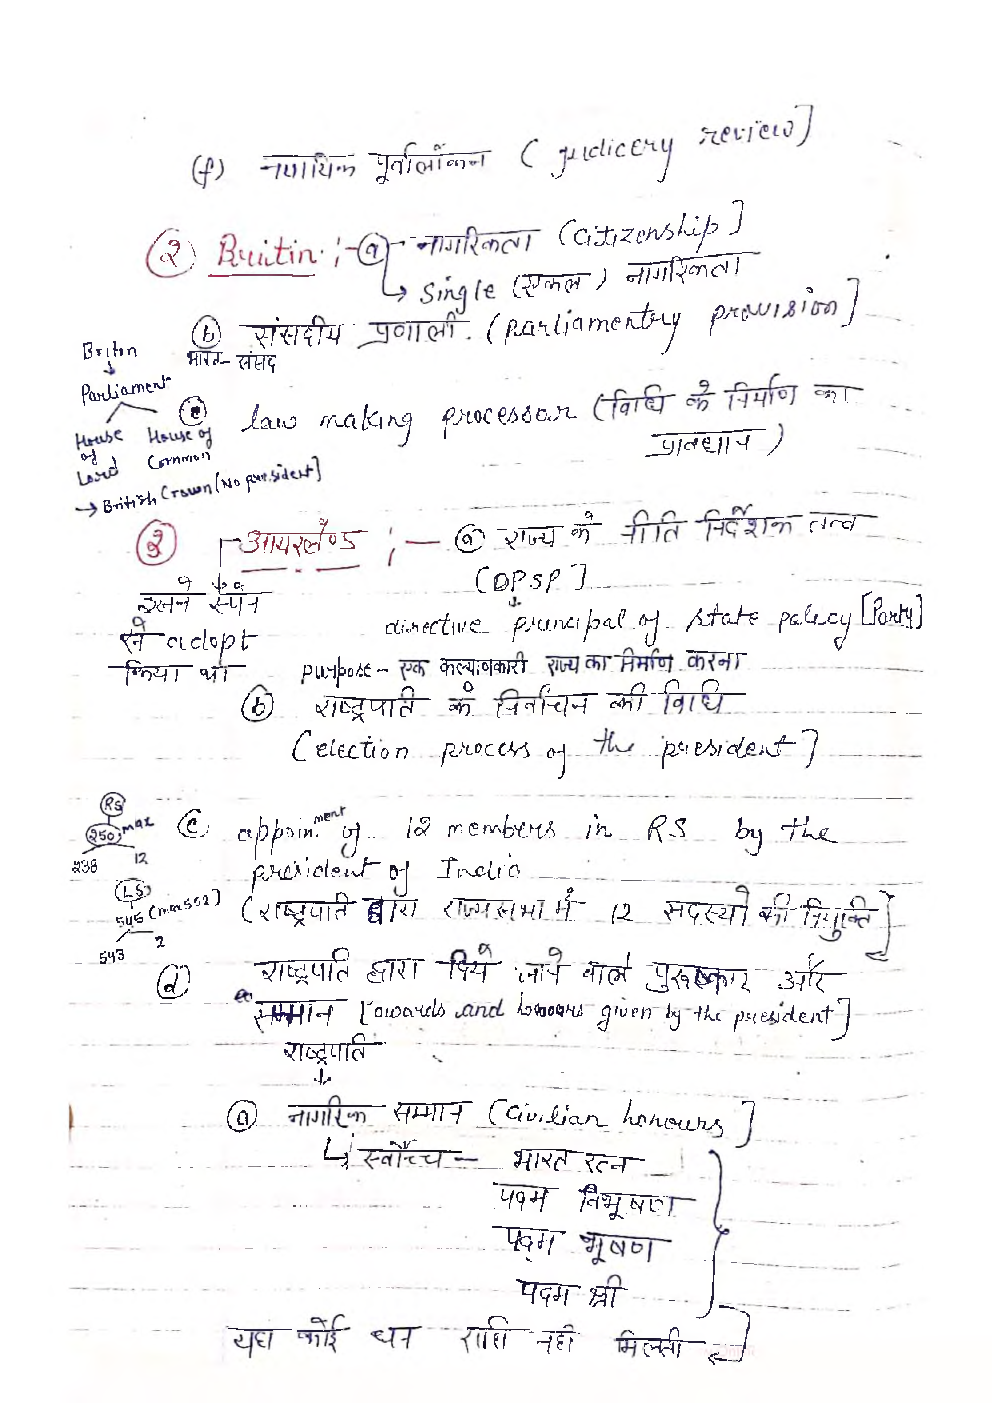 (f) नयायिक पूर्वालोकन ( judicery review)
२ Britin :- a नागरिकता (citizenship]
→ single (एकल) नागरिकता
b संसदीय प्रणाली. (parliamentry provision]
भारत- संसद
Briton
Parliament
House of Lord House of Common
→ British Crown (No president]
c law making processor (विधि के निर्माण का
प्रावधान)
3 आयरलैण्ड :- a राज्य के नीति निर्देशक तत्व
(DPSP]
directive principal of state palicy [Part4]
इसने स्पेन
से adopt
किया था
purpose - एक कल्याणकारी राज्य का निर्माण करना
b राष्ट्रपति के निर्वाचन की विधि
(election process of the president]
RS
250 max
238 12
c appointment of 12 members in RS by the
president of India
LS
545 (max 552)
543 2
(राष्ट्रपति द्वारा राज्यसभा में 12 सदस्यो की नियुक्ति]
d राष्ट्रपति द्वारा दिये जाने वाले पुरुष्कार और
सम्मान [awards and honours given by the president]
राष्ट्रपति
a नागरिक सम्मान (civilian honours]
स्वोच्च - भारत रत्न
पदम विभूषण
पद्म भूषण
पदम श्री
यहा कोई धन राशि नही मिलती